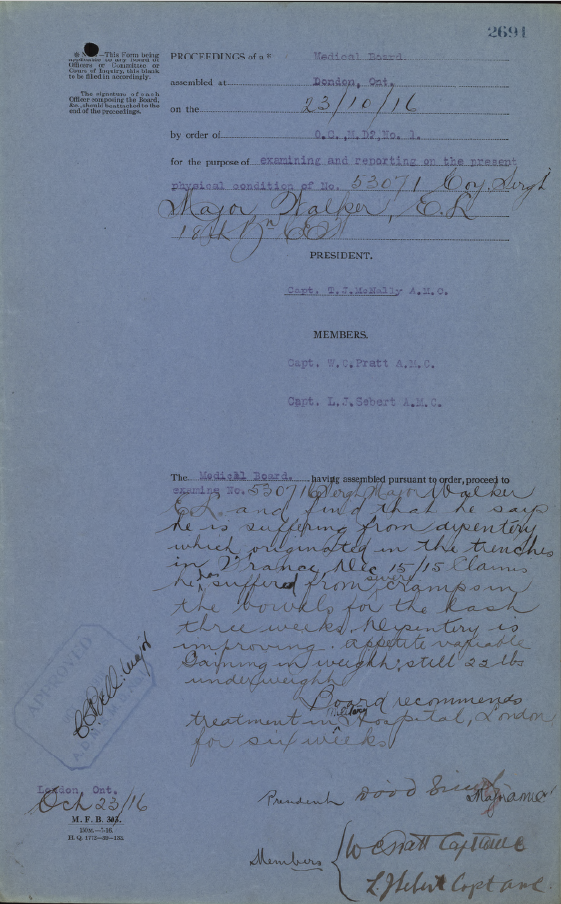 2691
—This Form being
applicable to any Board of
Officers or Committee or
Court of Inquiry, this blank
to be filled in accordingly.
The signature of each
Officer composing the Board,
&c., should be attached to the
end of the proceedings.
PROCEEDINGS of a Medical Board
assembled at London, Ont.
on the 23/10/16
by order of O.C., M.D2, No. 1.
for the purpose of examining and reporting on the present
physical condition of No. 53071 Coy. Sergt
Major Walker, E.L
18th Bn CEF
PRESIDENT.
Capt. T.J.McNally A.M.C.
MEMBERS.
Capt. W.C.Pratt A.M.C.
Capt. L.J.Sebert A.M.C.
The Medical Board. having assembled pursuant to order, proceed to
examine No. 53071 Sergt Major Walker
E.L. and find that he says
he is suffering from dysentery
which originated in the trenches
in France, Dec 15/15 Claims
he has suffered from severe cramps in
the bowels for the last
three weeks. Dysentery is
improving. Appetite variable
Gaining in weight, still 22 lbs
underweight
Board recommends
treatment in Military Hospital, London
for six weeks
APPROVED
Major
London, Ont.
Oct 23/16
M. F. B. 303.
150M.—7-16.
H. Q. 1772—39—132.
President Major AMC
Members W C Pratt Capt AMC
L J Sebert Capt AMC